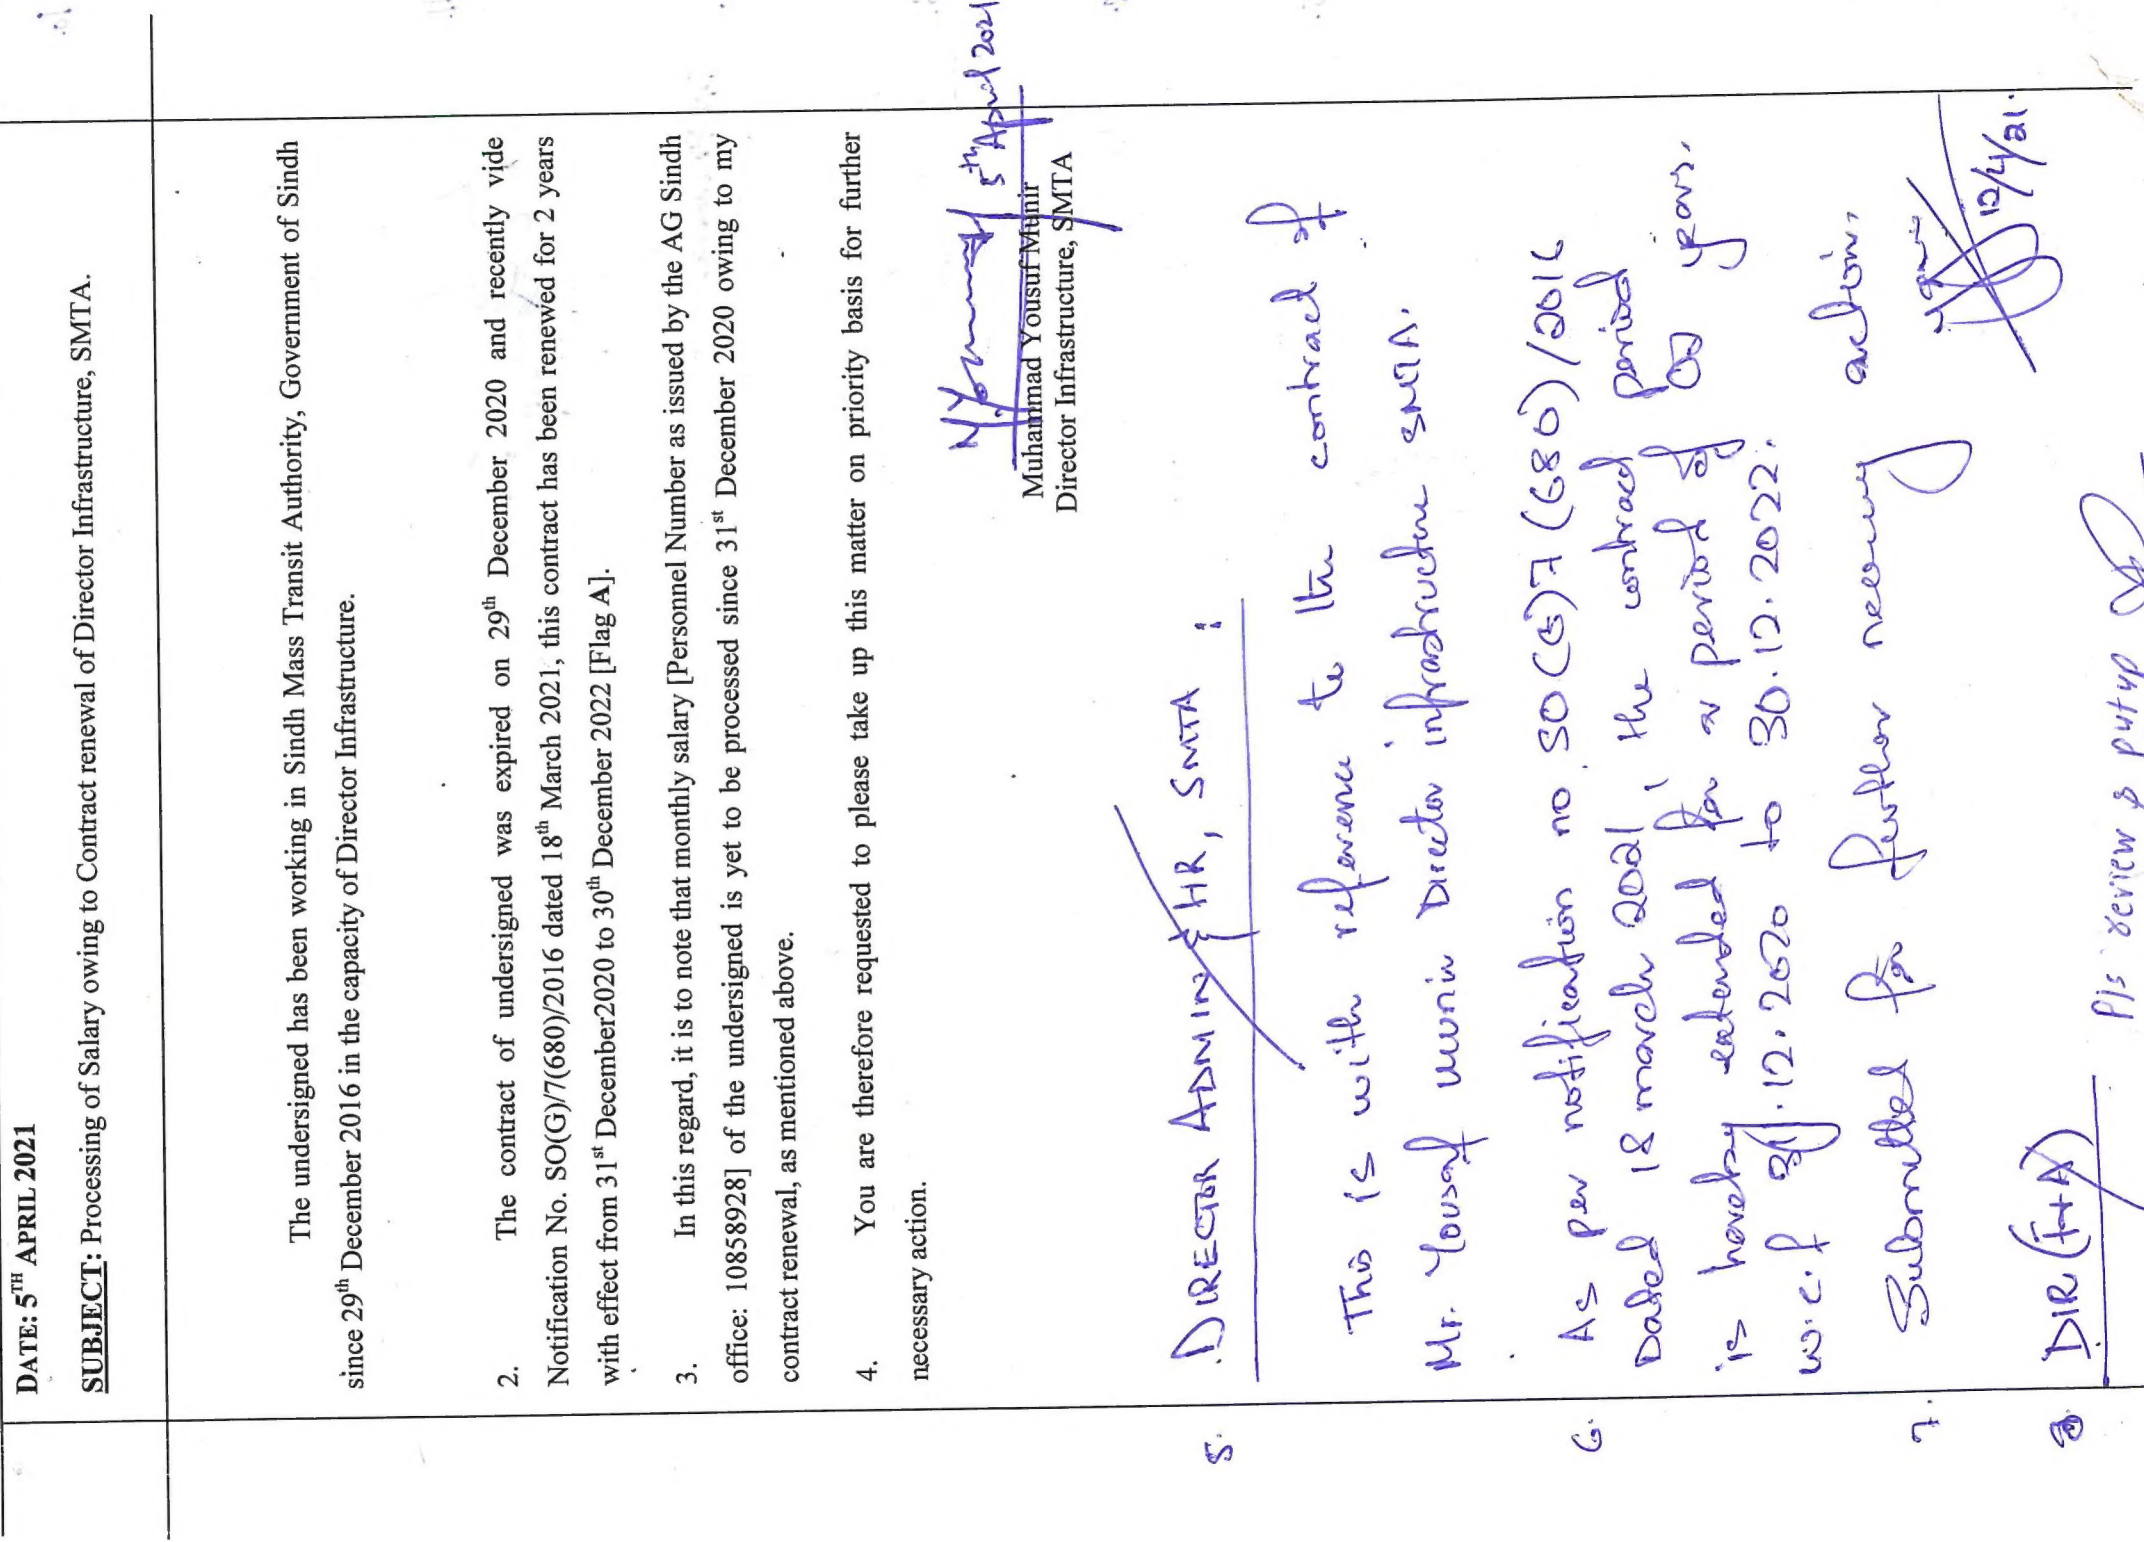 DATE: 5TH APRIL 2021
SUBJECT: Processing of Salary owing to Contract renewal of Director Infrastructure, SMTA.
The undersigned has been working in Sindh Mass Transit Authority, Government of Sindh
since 29th December 2016 in the capacity of Director Infrastructure.
2. The contract of undersigned was expired on 29th December 2020 and recently vide
Notification No. SO(G)/7(680)/2016 dated 18th March 2021, this contract has been renewed for 2 years
with effect from 31st December2020 to 30th December 2022 [Flag A].
3. In this regard, it is to note that monthly salary [Personnel Number as issued by the AG Sindh
office: 10858928] of the undersigned is yet to be processed since 31st December 2020 owing to my
contract renewal, as mentioned above.
4. You are therefore requested to please take up this matter on priority basis for further
necessary action.
5th April 2021
Muhammad Yousuf Munir
Director Infrastructure, SMTA
5. DIRECTOR ADMIN & HR, SMTA :
This is with reference to the contract of
Mr. Yousaf Munir Director infrastructure SMTA.
6. As per notification no SO(G)7(680)/2016
Dated 18 march 2021, the contract period
is hereby extended for a period of 02 years.
w.e.f 31.12.2020 to 30.12.2022.
7. Submitted for further necessary action.
12/4/21.
8. DIR (F+A)
Pls review & putup